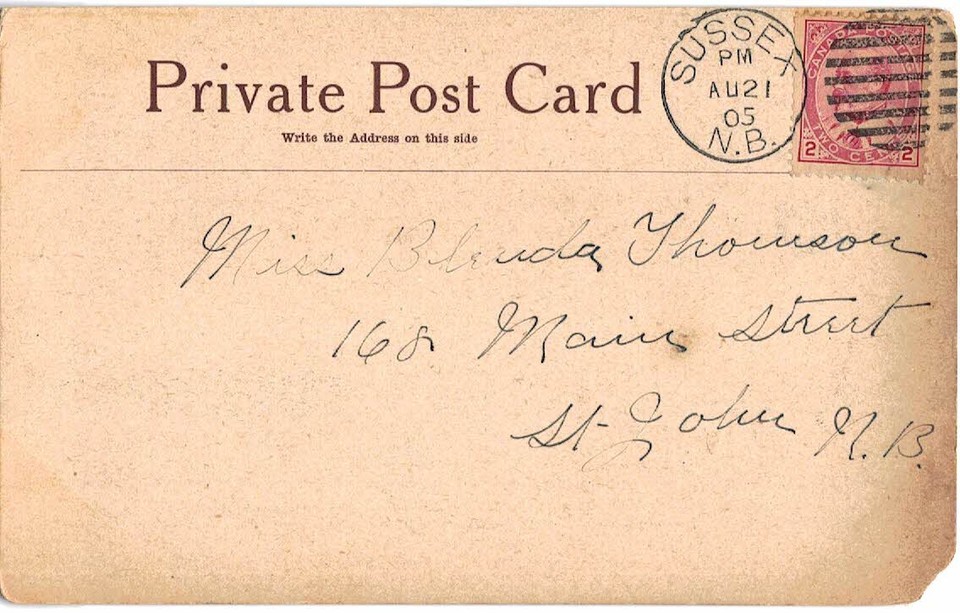 Private Post Card
Write the Address on this side
SUSSEX
PM
AU 21
05
N.B.
CANADA POSTAGE
2 TWO CENTS 2
Miss Blenda Thomson
168 Main Street
St John N.B.